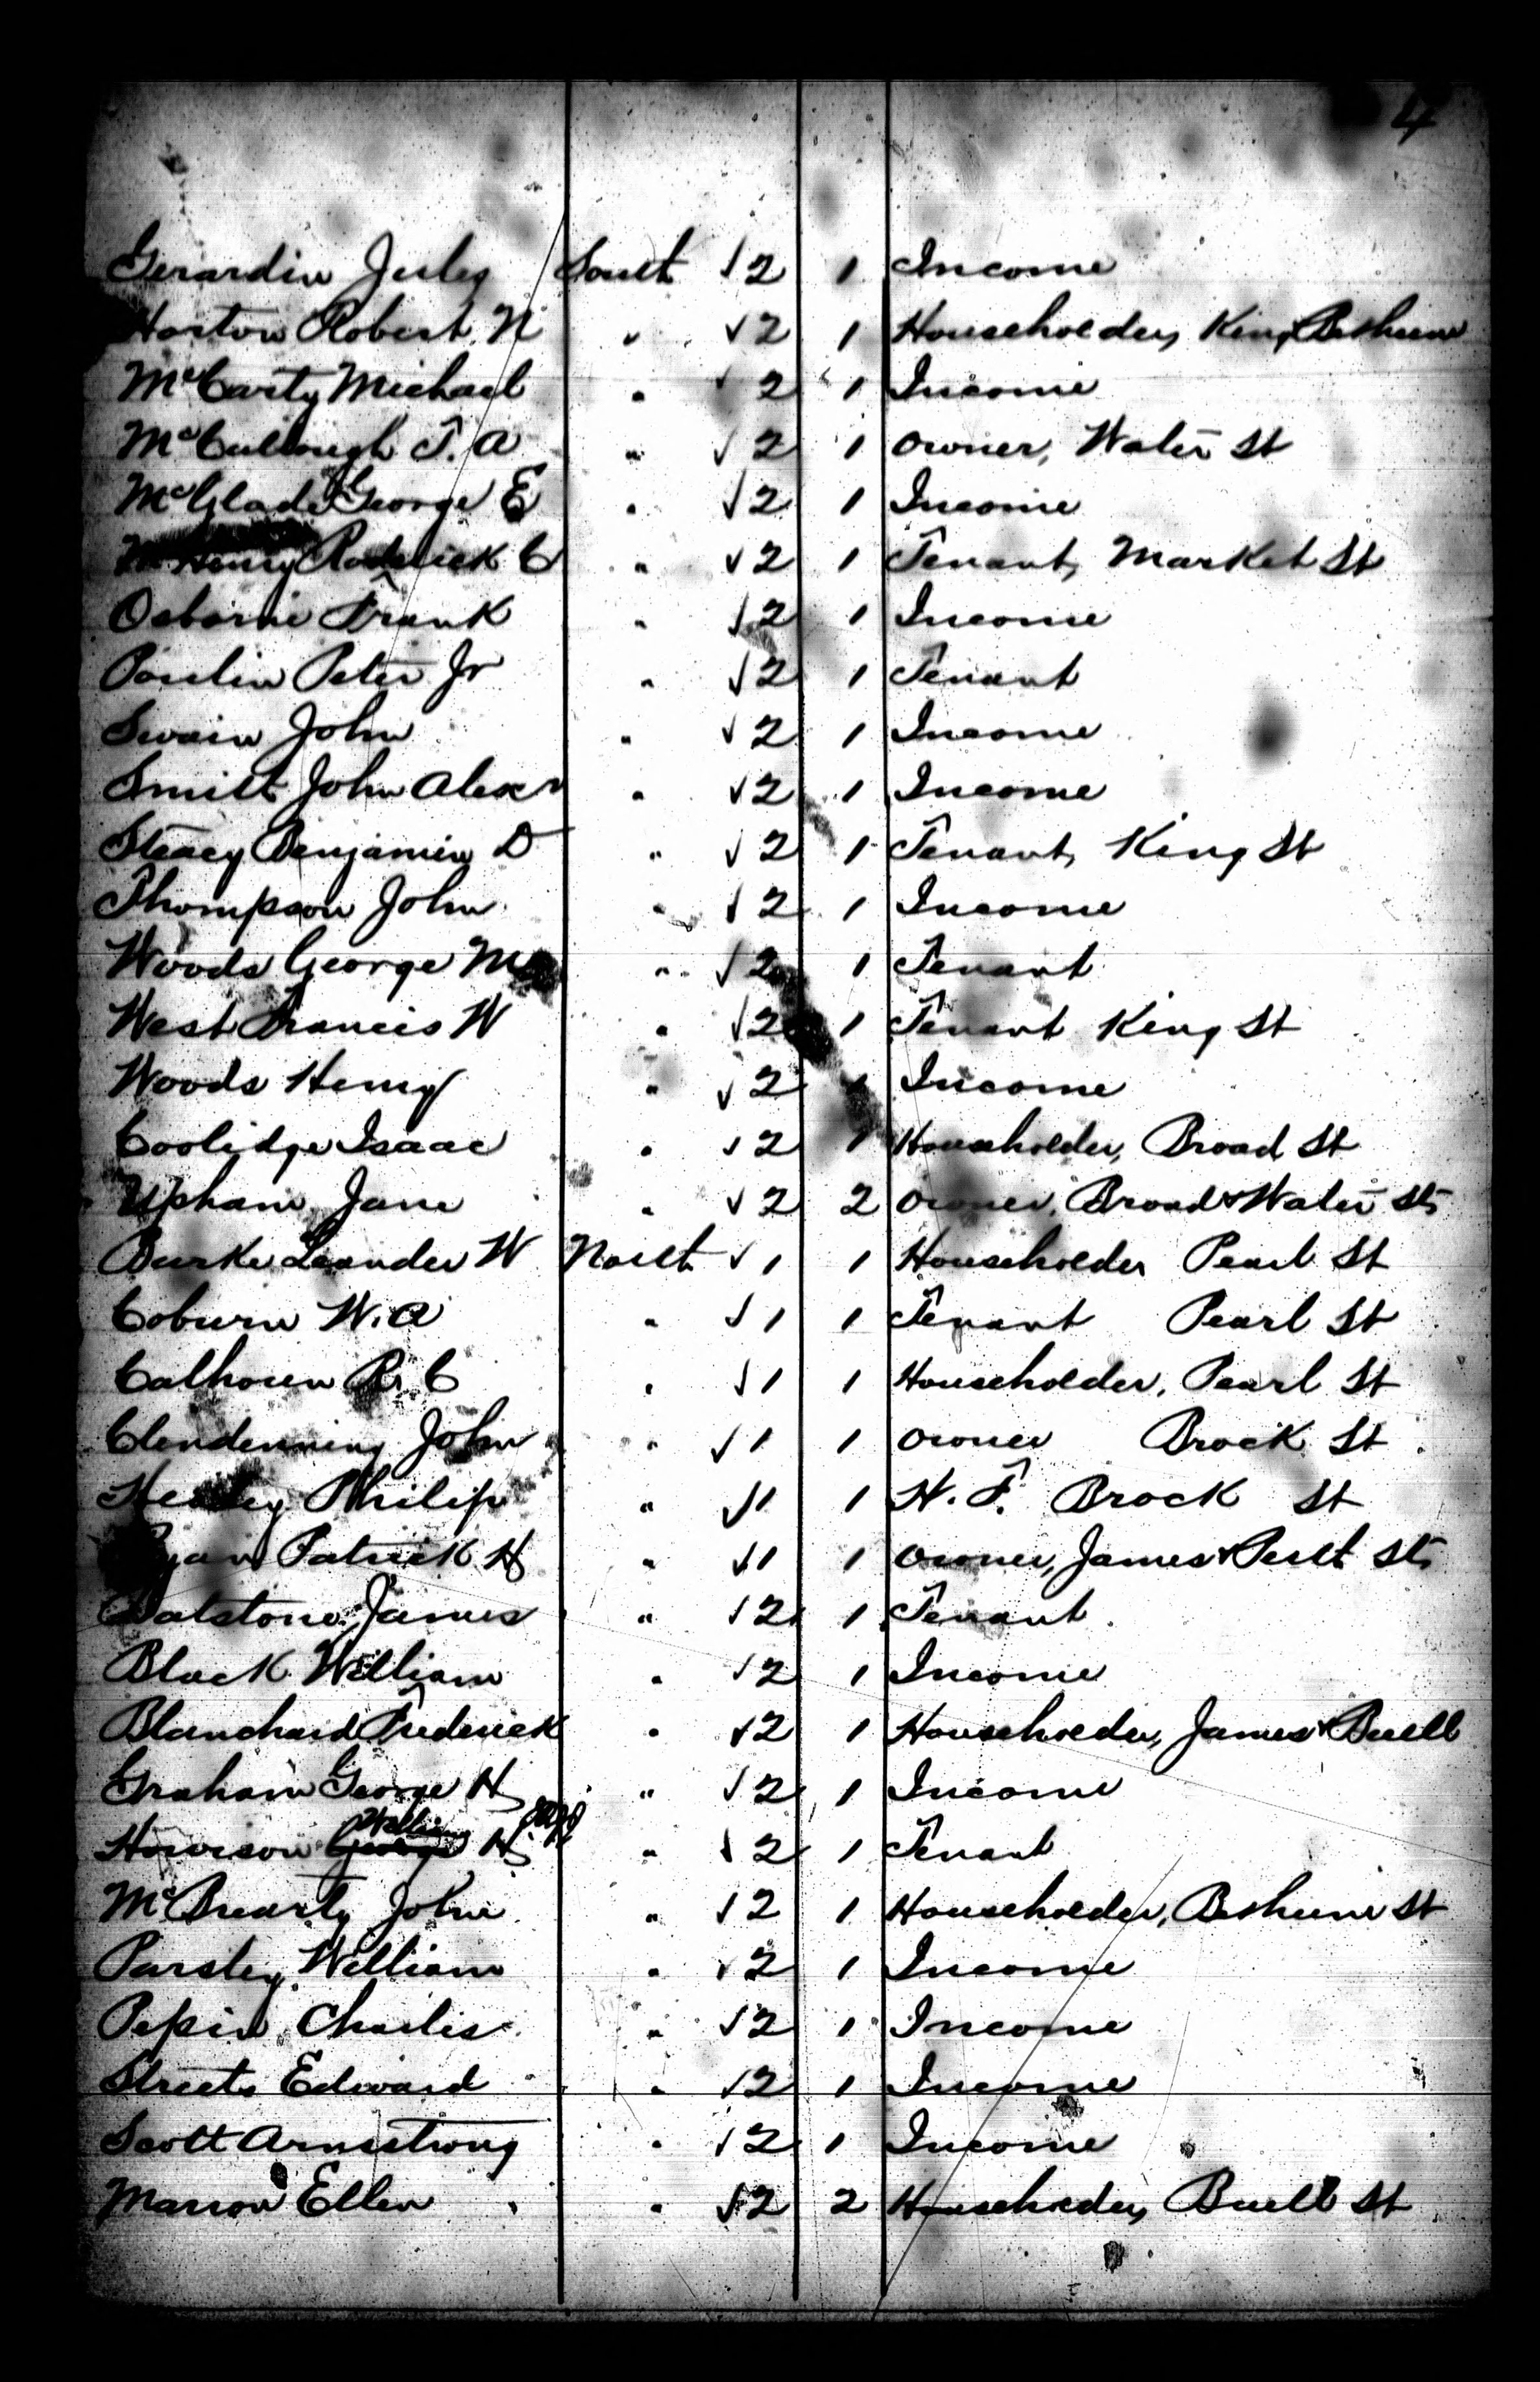 4
Gerardin Jules South √2 1 Income
Horton Robert N " √2 1 Householder, King & Bethune
McCarty Michael " √2 1 Income
McCullough T. A " √2 1 Owner, Water St
McGlade George E " √2 1 Income
McHenry Roderick C " √2 1 Tenant, Market St
Osborne Frank " √2 1 Income
Poulin Peter Jr " √2 1 Tenant
Swain John " √2 1 Income
Smith John Alexr " √2 1 Income
Steacy Benjamin D " √2 1 Tenant, King St
Thompson John " √2 1 Income
Woods George M " √2 1 Tenant
West Francis W " √2 1 Tenant King St
Woods Henry " √2 1 Income
Coolidge Isaac " √2 1 Householder, Broad St
Upham Jane " √2 2 Owner, Broad & Water Sts
Burke Leander W North √1 1 Householder Pearl St
Coburn W. A " √1 1 Tenant Pearl St
Calhoun R. C " √1 1 Householder, Pearl St
Clendenning John " √1 1 Owner Brock St
Philip " √1 1 H. F. Brock St
Ryan Patrick H " √1 1 Owner, James & Perth Sts
Batstone James " √2 1 Tenant
Black William " √2 1 Income
Blanchard Frederick " √2 1 Householder, James & Buell
Graham George H " √2 1 Income
William
Howison George H " √2 1 Tenant
McBrearty John " √2 1 Householder, Bethune St
Parsley William " √2 1 Income
Pepin Charles " √2 1 Income
Streets Edward " √2 1 Income
Scott Armstrong " √2 1 Income
Marron Ellen " √2 2 Householder, Buell St